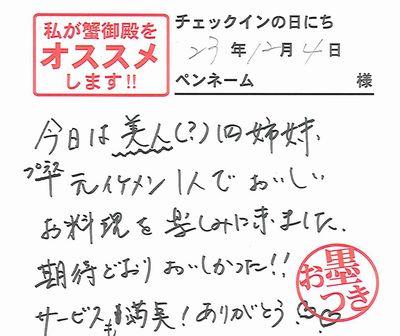 私が蟹御殿を
オススメ
します!!
チェックインの日にち
23年12月4日
ペンネーム 様
今日は美人(?)四姉妹、
元イケメン1人でおいしい
お料理を楽しみに来ました。
期待どおりおいしかった!!
サービスも満点!ありがとう
お墨つき